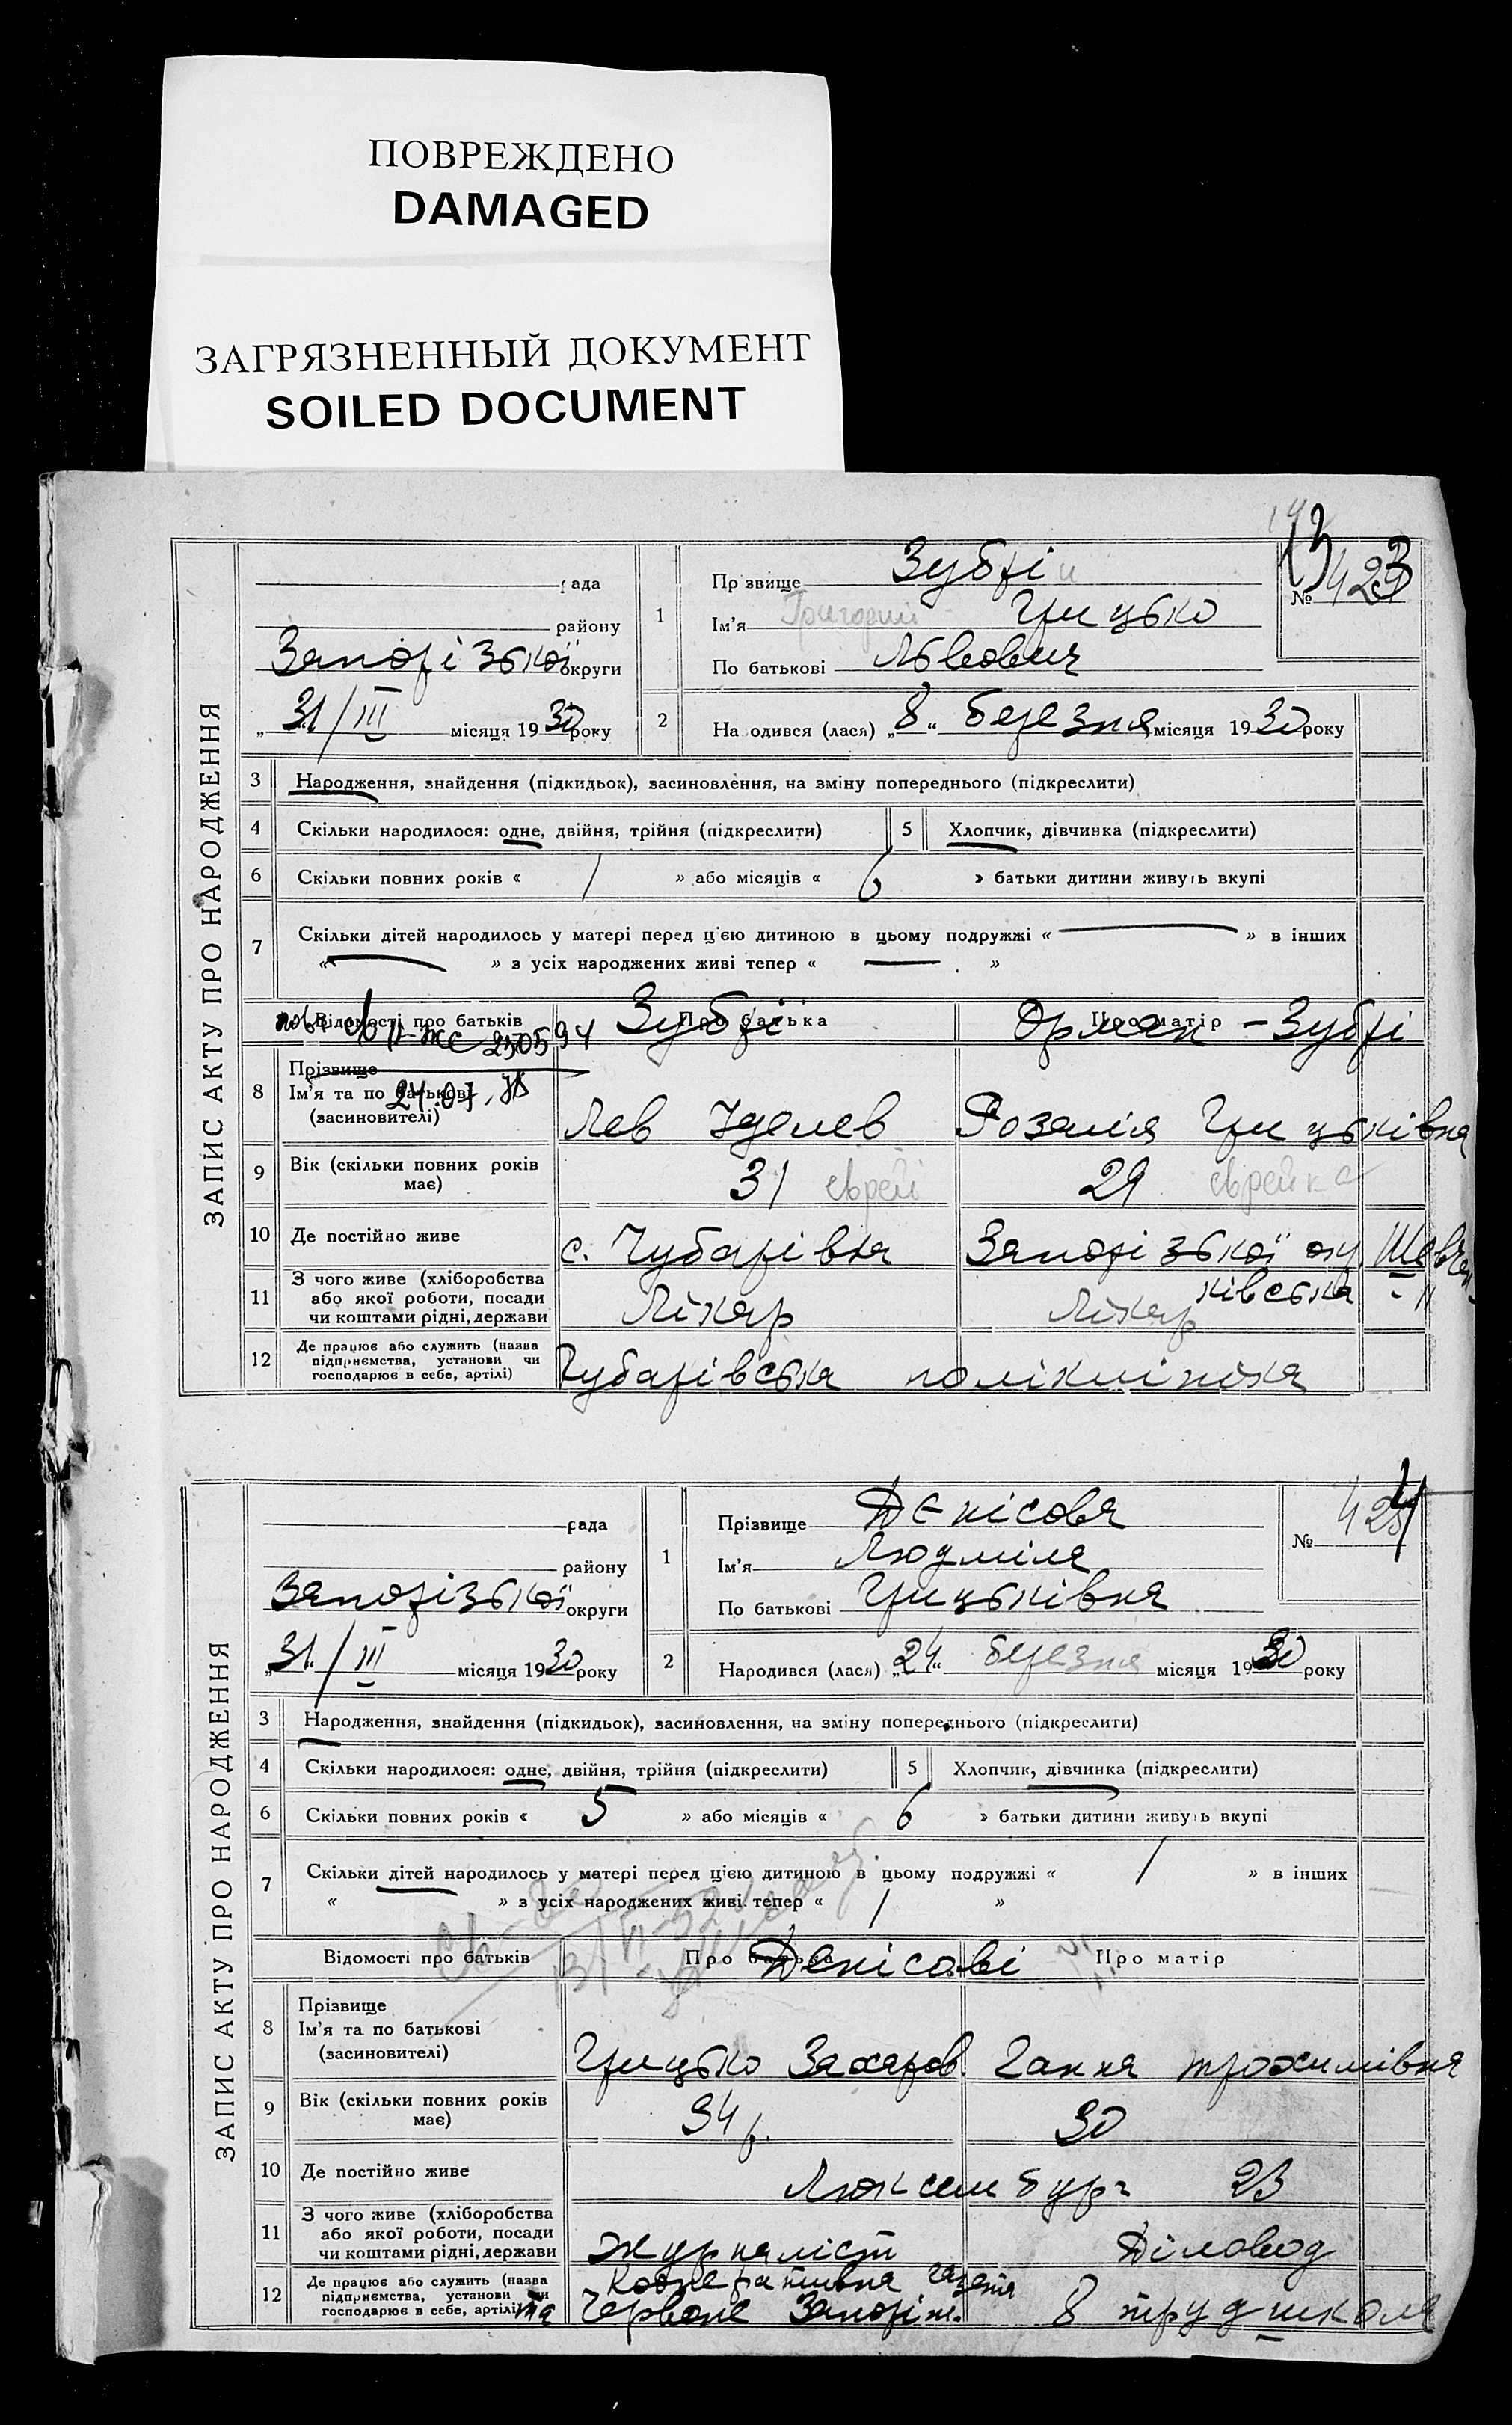 ПОВРЕЖДЕНО
DAMAGED
ЗАГРЯЗНЕННЫЙ ДОКУМЕНТ
SOILED DOCUMENT
ЗАПИС АКТУ ПРО НАРОДЖЕННЯ
рада
району
Запорізької округи
„31/III місяця 1930 року
1
Прізвище Зубрі
Ім'я Григорий Грицько
По батькові Львович
№ 423
2 Народився (лася) „8“ березня місяця 1930 року
3 Народження, знайдення (підкидьок), засиновлення, на зміну попереднього (підкреслити)
4 Скільки народилося: одне, двійня, трійня (підкреслити)
5 Хлопчик, дівчинка (підкреслити)
6 Скільки повних років « 1 » або місяців « 6 » батьки дитини живуть вкупі
7 Скільки дітей народилось у матері перед цією дитиною в цьому подружжі « — » в інших
« — » з усіх народжених живі тепер « — »
Відомості про батьків Про батька Про матір
Зубрі Орман - Зубрі
250594
24.07.
8 Прізвище
Ім'я та по батькові
(засиновителі)
Лев Іделев Розалія Грицьківна
9 Вік (скільки повних років
має)
31 еврей 29 еврейка
10 Де постійно живе
с. Чубарівка Запорізької ок. Шевчен-
ківська
11 З чого живе (хліборобства
або якої роботи, посади
чи коштами рідні, держави
Лікар Лікар
12 Де працює або служить (назва
підприємства, установи чи
господарює в себе, артілі)
Чубарівська поліклініка
ЗАПИС АКТУ ПРО НАРОДЖЕННЯ
рада
району
Запорізької округи
„31/III місяця 1930 року
1
Прізвище Денісова
Ім'я Людміла
По батькові Грицьківна
№ 424
2 Народився (лася) „24“ березня місяця 1930 року
3 Народження, знайдення (підкидьок), засиновлення, на зміну попереднього (підкреслити)
4 Скільки народилося: одне, двійня, трійня (підкреслити)
5 Хлопчик, дівчинка (підкреслити)
6 Скільки повних років « 5 » або місяців « 6 » батьки дитини живуть вкупі
7 Скільки дітей народилось у матері перед цією дитиною в цьому подружжі « 1 » в інших
« » з усіх народжених живі тепер « 1 »
Відомості про батьків Про батька Про матір
Денісові
8 Прізвище
Ім'я та по батькові
(засиновителі)
Грицько Захаров. Ганна Трохимівна
9 Вік (скільки повних років
має)
34 р. 30
10 Де постійно живе
Люксембург 23
11 З чого живе (хліборобства
або якої роботи, посади
чи коштами рідні, держави
журналіст Діловод
12 Де працює або служить (назва
підприємства, установи чи
господарює в себе, артілі)
Кооперативна газета
та Червоне Запоріж. 8 трудшкола